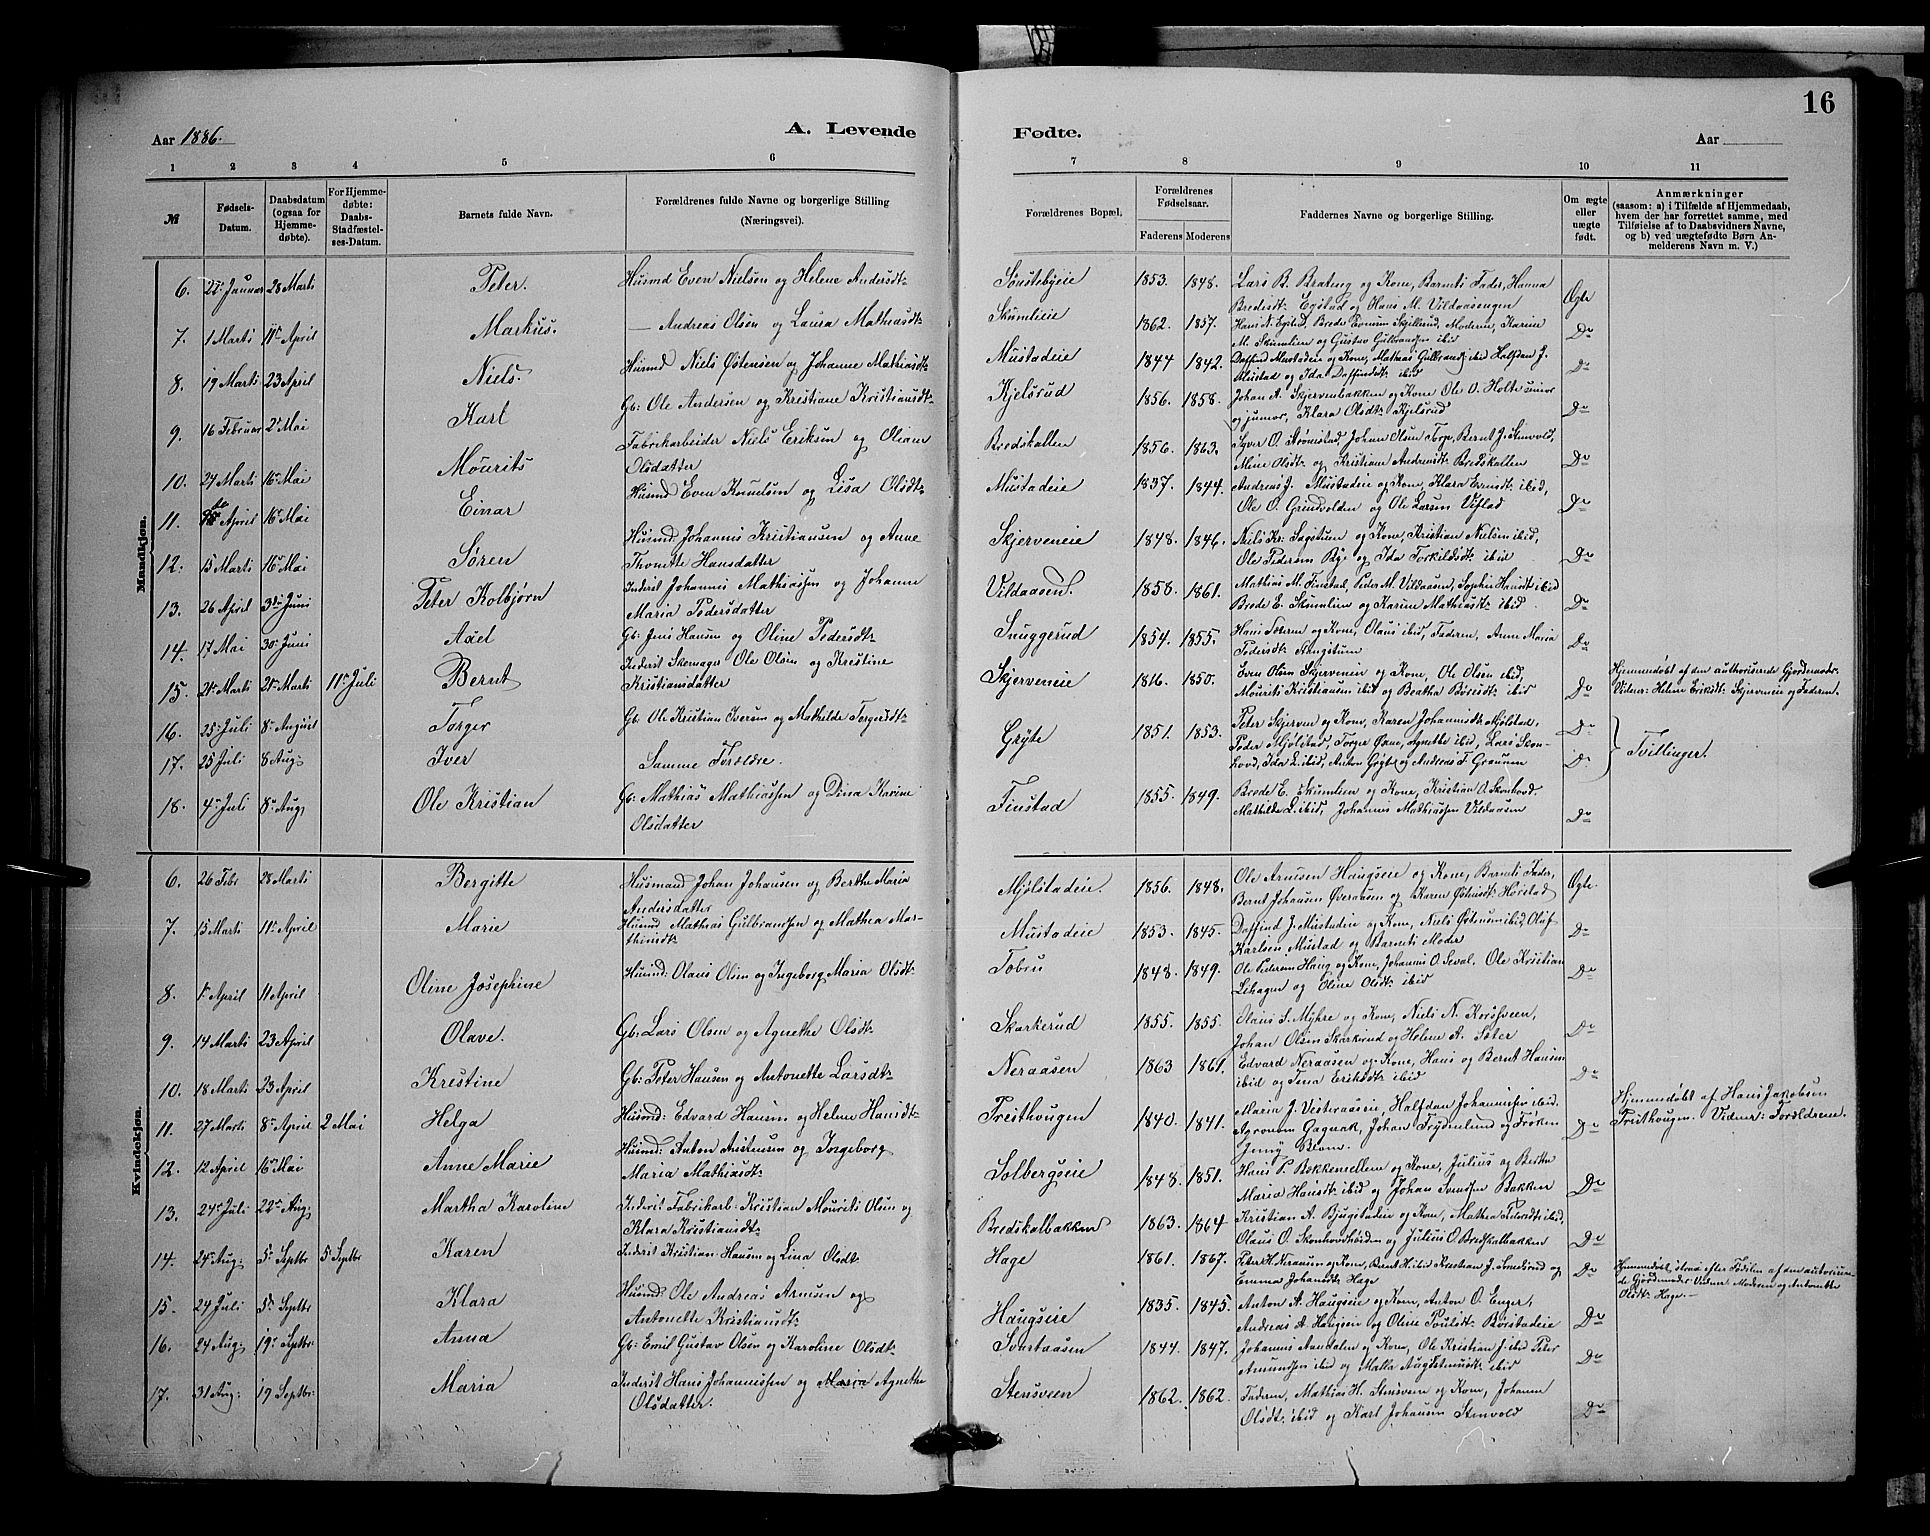 16
Aar 1886.
A. Levende Fødte.
Aar
1 2 3 4 5 6 7 8 9 10 11
№
Fødsels-Datum.
Daabsdatum (ogsaa for Hjemmedøbte).
For Hjemmedøbte: Daabs-Stadfæstelses-Datum.
Barnets fulde Navn.
Forældrenes fulde Navne og borgerlige Stilling (Næringsvei).
Forældrenes Bopæl.
Forældrenes Fødselsaar.
Faderens Moderens
Faddernes Navne og borgerlige Stilling.
Om ægte eller uægte født.
Anmærkninger
(saasom: a) i Tilfælde af Hjemmedaab, hvem der har forrettet samme, med Tilføielse af to Daabsvidners Navne, og b) ved uægtefødte Børn Anmelderens Navn m. V.)
Mandkjøn.
6. Januar 28 Marts Peter. Husmd Even Nielsen og Helene Andersdt. Sønstebyeie 1853. 1848. Lars B. Brateng og Kone, Barnets Fader, Hanna
Bredesdt. Egstad og Hans M. Vildaasengen Ægte
7. 1 Marts 11 April Markus. — Andreas Olsen og Laura Mathiasdt. Skumlieie 1862. 1857. Hans N. Egstad, Brede Evensen Skjillerud, Moderen, Karine
M. Skumlien og Gustav Gulbrandsen ibid Do
8. 19 Marts 23 April Niels. Husmd Niels Østensen og Johanne Mathiasdt. Mustadeie 1844 1842. Daffind Mustadeie og Kone, Mathias Gulbrands ibid Halfdan J.
Mustad og Ida Daffindsdt. ibid Do
9. 16 Februar 2 Mai Karl Gb: Ole Andersen og Kristiane Kristiansdt. Kjelsrud 1856. 1858. Johan A. Skjervenbakken og Kone Ole O. Holte senior
og junior, Klara Olsdt. Kjelsrud Do
10. 24 Marts 16 Mai Mourits Fabrikarbeider Niels Eriksen og Oliane
Olsdatter Bredskallen 1856. 1863. Syver O. Strømstad Johan Olsen Torp, Bernt J. Stenvold,
Mine Olsdt. og Kristiane Andreasdt. Bredskallen Do
11. April 16 Mai Einar Husmd Even Kornelsen og Lisa Olsdt. Mustadeie 1837. 1844. Andreas J. Mustadeie og Kone, Klara Evensdt. ibid,
Ole O. Grindvolden og Ole Larsen Vifstad Do
12. 13 Marts 16 Mai Søren Husmd Johannes Kristiansen og Anne
Thonette Hansdatter Skjerveneie 1848. 1846. Niels Kr. Sagstuen og Kone, Kristian Nielsen ibid,
Ole Pedersen Bye og Ida Torkildsdt. ibid Do
13. 26 April 3 Juni Peter Kolbjørn Inderst Johannes Mathiassen og Johanne
Maria Pedersdatter Vildaasen. 1858. 1861. Mathias M. Finstad, Peder M. Vildaasen, Sophie Hansdt ibid
Brede E. Skumlien og Karine Mathiasdt. ibid. Do
14. 17 Mai 30 Juni Axel Gb. Jens Hansen og Oline Pedersdt. Snuggerud 1854. 1855. Hans Sæteren og Kone, Olaus ibid, Faderen, Anne Maria
Pedersdt. Do
15. 21 Marts 21 Marts 11 Juli Bernt Inderst Skomager Ole Olsen og Kristine
Kristiansdatter Skjerveneie 1816. 1850. Even Olsen Skjerveneie og Kone, Ole Olsen ibid,
Mourits Kristiansen ibid og Beatha Børesdt. ibid Do Hjemmedøbt af den authoriserede Gjordemoder.
Vidner: Helene Eriksdt. Skjerveneie og Faderen.
16. 25 Juli 8 August Torger Gb. Ole Kristian Iversen og Mathilde Torgersdt. Grøte 1851. 1853. Peter Skjerven og Kone, Karen Johannesdt. Mjølstad, Do
17. 25 Juli 8 Aug; Iver Samme Forældre. Peder Mjølstad, Torger Øxne, Agnethe ibid, Lars Skonhovd, Ida L. ibid, Anton Grøte og Andreas F. Graunen Do Tvillinger.
18. 4 Juli 8 Aug; Ole Kristian Gb. Mathias Mathiassen og Dina Karine
Olsdatter Finstad 1855. 1849. Brede E. Skumlien og Kone, Kristian O. Skonhovd.
Mathilde L. ibid, Johannes Mathiassen Vildaasen Do
Kvindekjøn.
6. 26 Febr 28 Marts Bergitte Husmand Johan Johansen og Berthe Maria
Andersdatter Mjølstadeie. 1856. 1848. Ole Arnesen Haugseie og Kone, Barnets Fader,
Bernt Johansen Øveraasen og Karen Østensdt. Ægte.
7. 15 Marts 11 April Marie Husmd Mathias Gulbrandsen og Mathea Marthinsdt. Mustadeie 1853. 1845. Daffind J. Mustadeie og Kone, Niels Østensen ibid, Oluf
Karlsen Mustad og Barnets Moder Do
8. 1 April 11 April Oline Josephine Husmd: Olaus Olsen og Ingeborg Maria Olsdt. Tobru 1848. 1849. Ole Pedersen Haug og Kone, Johannes O. Seval, Ole Kristian
Lihagen og Oline Olsdt. ibid Do
9. 14 Marts 23 April Olave. Gb. Lars Olsen og Agnethe Olsdt. Skarkerud 1855. 1855. Olaus S. Myhre og Kone, Niels N. Korsveen,
Johan Olsen Skarkerud og Helene A. Sæter Do
10. 18 Marts 23 April Kristine Gb: Peter Hansen og Antonette Larsdt. Neraasen 1863 1861. Edvard Neraasen og Kone, Hans og Bernt Hansen
ibid og Tena Eriksdt. ibid Do
11. 27 Marts 8 April 2 Mai Helga Husmd: Edvard Hansen og Helene Hansdt. Presthougen 1840. 1841. Maria J. Vesteraaseie, Halfdan Johannessen ibid.
Agronom Gagnak, Johan Frydenlund og Frøken
Jenny Do Hjemmedøbt af Hans Jakobsen
Presthougen. Vidner: Forældrene.
12. 12 April 16 Mai Anne Marie Husmd: Anton Austensen og Ingeborg
Maria Mathiasdt. Solbergseie 1848. 1851. Hans P. Bakkemellem og Kone, Julius og Berthe
Maria Hansdt. ibid og Johan Svendsen Bakken Do
13. 24 Juli 22 Aug; Martha Karoline Inderst Fabrikarb. Kristian Mourits Olsen og
Klara Kristiansdt. Bredskalbakken 1863. 1864 Kristian A. Bjugstadeie og Kone, Mathea Pedersdt. ibid,
Olaus O. Skonhovdhøiden og Julius O. Bredskalbakken Do
14. 24 Aug: 5 Septbr 5 Septbr Karen Inderst Kristian Hansen og Lina Olsdt. Hage 1861. 1867. Peter H. Neraasen og Kone, Bernt H. ibid Kristian J. og
Emma Johansdt. Hage Do Hjemmedøbt strax efter Fødslen af den autoriserede Gjordemoder. Vidner Moderen og Antonette
Olsdt. Hage. —
15. 24 Juli 5 Septbr Klara Husmd: Ole Andreas Arnesen og
Antonette Kristiansdt. Haugseie 1835. 1845. Anton A. Haugseie og Kone, Anton O. Enger,
Andreas A. Haugseie og Oline Poulsdt. Børstadeie Do
16. 24 Aug; 19 Septbr: Anna Gb: Emil Gustav Olsen og Karoline Olsdt. Svartaasen 1844. 1847. Johannes Aandalen og Kone, Ole Kristian J. ibid Peter
Amundsen ibid og Malla ibid Do
17. 31 Aug; 19 Septbr: Maria Inderst Hans Johannessen og Maria Agnethe
Olsdatter. Stensveen 1862. 1862. Faderen, Mathias H. Stensveen og Kone, Johanne
Olsdt. ibid og Karl Johansen Stenvold Do